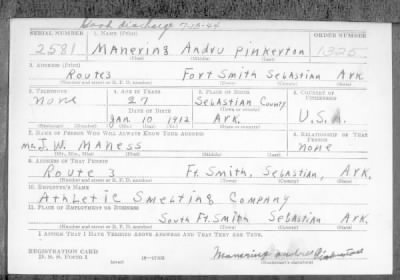 Discharge 7-13-44
SERIAL NUMBER 1. NAME (Print) ORDER NUMBER
2581 Manering Andru Pinkerton 1325
(First) (Middle) (Last)
2. ADDRESS (Print)
Route 3 Fort Smith Sebastian Ark.
(Number and street or R. F. D. number) (Town) (County) (State)
3. TELEPHONE 4. AGE IN YEARS 5. PLACE OF BIRTH 6. COUNTRY OF CITIZENSHIP
None 27 Sebastian County
DATE OF BIRTH (Town or county)
Jan. 10 1912 Ark. U.S.A.
(Exchange) (Number) (Mo.) (Day) (Yr.) (State or country)
7. NAME OF PERSON WHO WILL ALWAYS KNOW YOUR ADDRESS 8. RELATIONSHIP OF THAT PERSON
Mr. J. W. Maness none
(Mr., Mrs., Miss) (First) (Middle) (Last)
9. ADDRESS OF THAT PERSON
Route 3 Ft. Smith, Sebastian, Ark.
(Number and street or R. F. D. number) (Town) (County) (State)
10. EMPLOYER'S NAME
Athletic Smelting Company
11. PLACE OF EMPLOYMENT OR BUSINESS
South Ft. Smith Sebastian Ark.
(Number and street or R. F. D. number) (Town) (County) (State)
I AFFIRM THAT I HAVE VERIFIED ABOVE ANSWERS AND THAT THEY ARE TRUE.
REGISTRATION CARD
D. S. S. Form 1 16-17105 Manering Andru Pinkerton